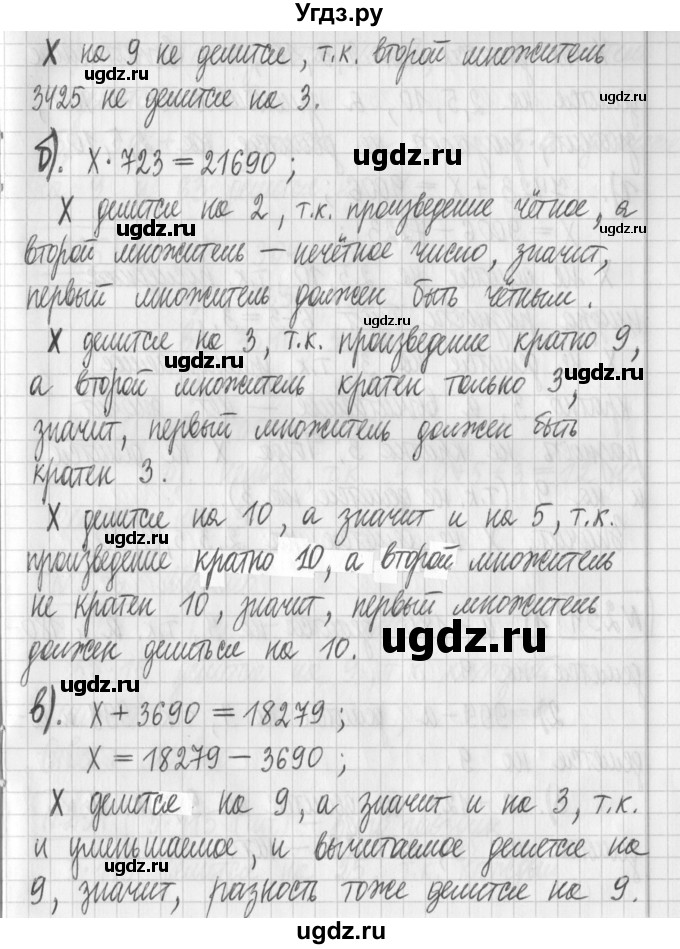 Угдз.ру
X на 9 не делится, т.к. второй множитель
ugdz.ru
3425 не делится на 3.
ugdz.ru
б). X · 723 = 21690 ;
ugdz.ru
ugdz.ru
X делится на 2, т.к. произведение чётное, а
ugdz.ru
ugdz.ru
второй множитель — нечётное число, значит,
первый множитель должен быть чётным.
ugdz.ru
X делится на 3, т.к. произведение кратно 9,
ugdz.ru
ugdz.ru
а второй множитель кратен только 3,
значит, первый множитель должен быть
кратен 3.
X делится на 10, а значит и на 5, т.к.
ugdz.ru
произведение кратно 10, а второй множитель
не кратен 10, значит, первый множитель
ugdz.ru
должен делиться на 10.
ugdz.ru
в). X + 3690 = 18279 ;
X = 18279 – 3690 ;
X делится на 9, а значит и на 3, т.к.
ugdz.ru
и уменьшаемое, и вычитаемое делится на
ugdz.ru
9, значит, разность тоже делится на 9.
ugdz.ru